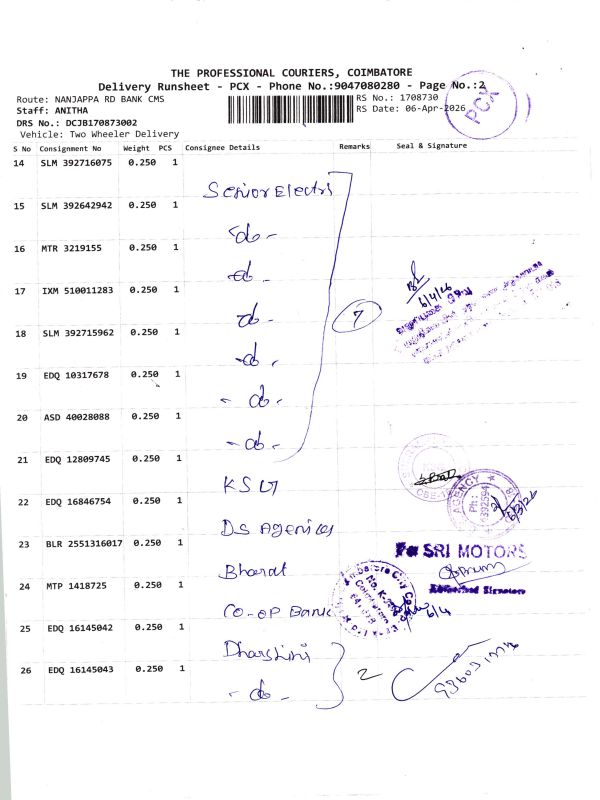 THE PROFESSIONAL COURIERS, COIMBATORE
Delivery Runsheet - PCX - Phone No.:9047080280 - Page No.:2
PCX
Route: NANJAPPA RD BANK CMS
RS No.: 1708730
Staff: ANITHA
RS Date: 06-Apr-2026
DRS No.: DCJB170873002
Vehicle: Two Wheeler Delivery
S No Consignment No Weight PCS Consignee Details Remarks Seal & Signature
14 SLM 392716075 0.250 1 Senior Electri
15 SLM 392642942 0.250 1 -do-
16 MTR 3219155 0.250 1 -do-
17 IXM 510011283 0.250 1 -do- 7
6/4/26
18 SLM 392715962 0.250 1 -do-
19 EDQ 10317678 0.250 1 -do-
20 ASD 40028088 0.250 1 -do-
21 EDQ 12809745 0.250 1 KSG
22 EDQ 16846754 0.250 1 DS Agencies
AGENCY
Ph:
23 BLR 2551316017 0.250 1 Bharat
For SRI MOTORS
Authorised Signatory
24 MTP 1418725 0.250 1 CO-OP Bank
6/4
25 EDQ 16145042 0.250 1 Dharshini
26 EDQ 16145043 0.250 1 -do- 2